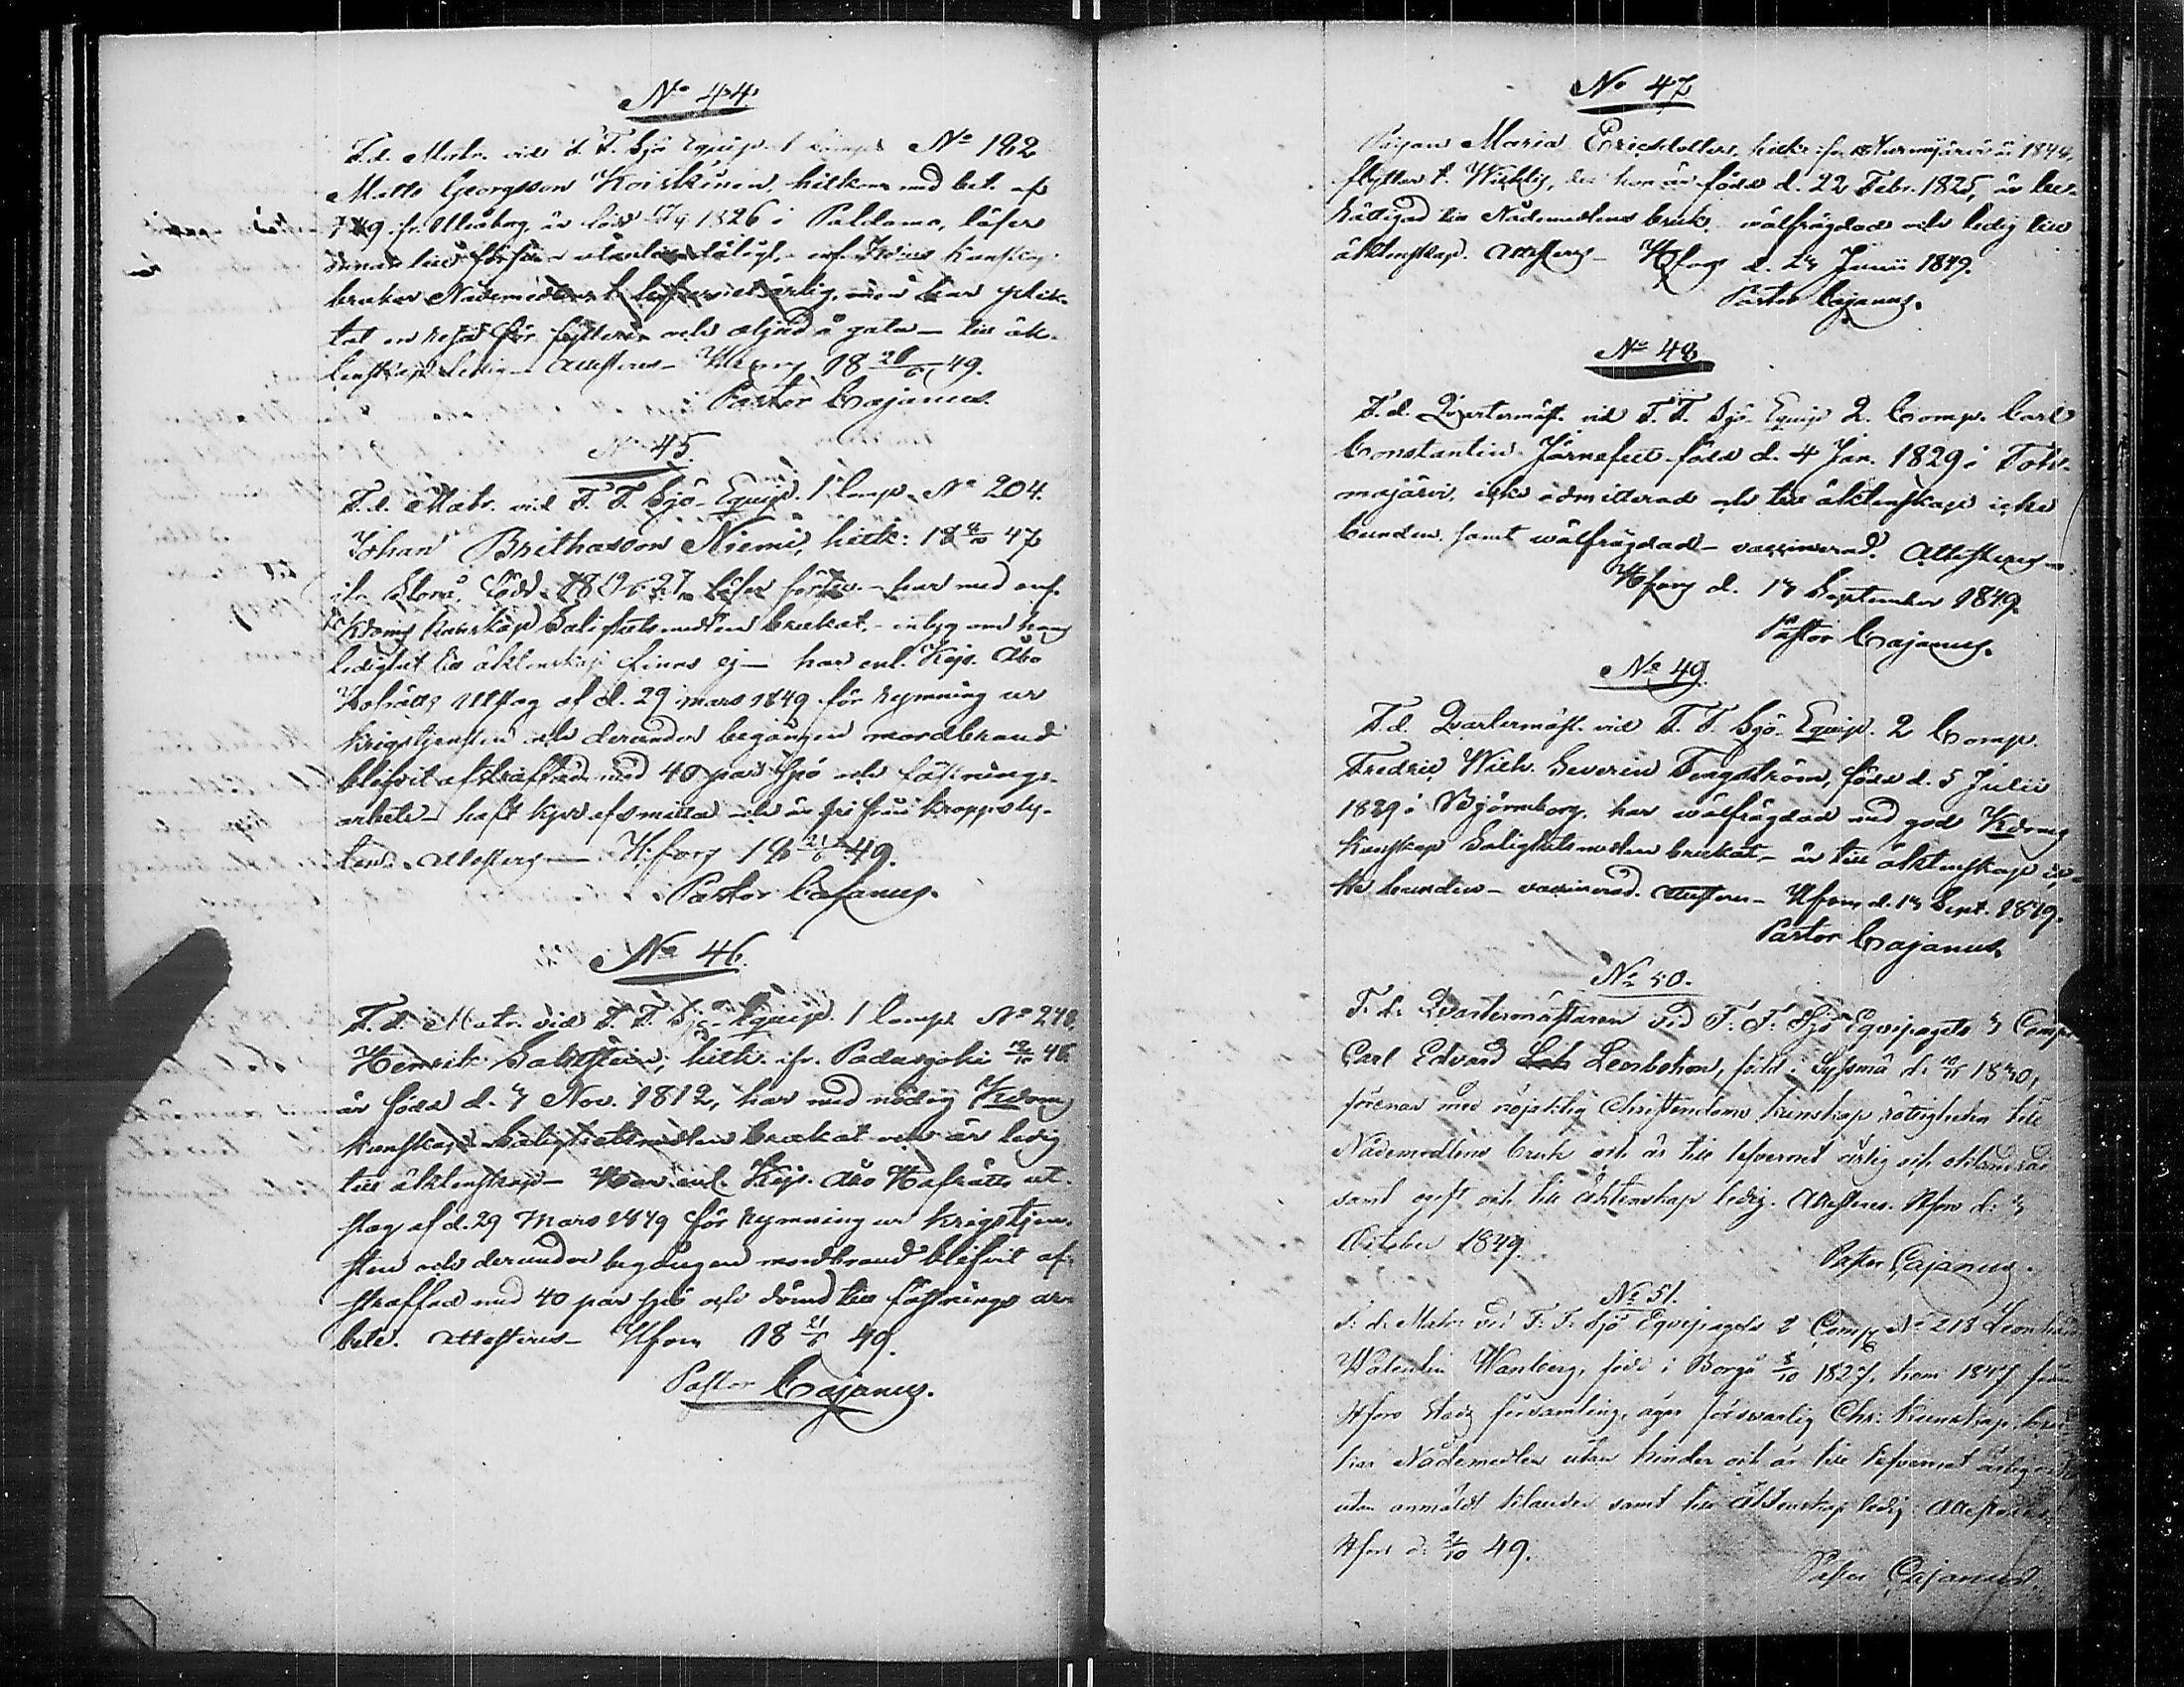 No 44.
F.d. Matr. vid F. F. Sjö Equip. 1 Comp. No 192
Matts Georgsson Koistinen, hitkom med bet. af
fr. Uleåborg, är född 1826 i Paldamo, läser
innan till försv. utanlexa enf.
brukar Nådemedlen, t. lefvernet ärlig, men har plik-
tat en resa för fylleri och oljud å gatan – till äk-
tenskap ledig – Attesteras – Hfors 18 21/6 49.
Pastor Cajanus.
No 45.
F.d. Matr. vid F. F. Sjö-Equip. 1 Comp. No 204.
Johan Brithasson Niemi, hitk: 18 47
ifr. Storå, född 18 27, läser förs. – har med enf.
Kdoms Kunskap Salighetsmedlen brukat, – intyg om hans
ledighet till äktenskap finns ej – har enl. Kejs. Åbo
Hofrätts Utslag af d. 29 Mars 1849 för rymning ur
Krigstjensten och derunder begången mordbrand
blifvit afstraffad med 40 par spö och fästnings-
arbete – haft och är fri från kroppsly-
ten. Attesteras – Hfors 18 21/6 49.
Pastor Cajanus.
No 46.
F.d. Matr. vid F. F. Sjö-Equip. 1 Comp. No 248.
Henrik hitk. ifr. Padasjoki 46
är född d. 7 Nov. 1812, har med nödig Kdoms
kunskap Salighetsmedlen brukat och är ledig
till äktenskap – Har enl. Kejs. Åbo Hofrätts ut-
slag af d. 29 Mars 1849 för rymning ur Krigstjen-
sten och derunder begången mordbrand blifvit af-
straffad med 40 par spö och dömd till fästnings ar-
bete. Attesteras – Hfors 18 21/6 49.
Pastor Cajanus.
No 47
Pigan Maria Ericsdotter, hitk. ifr. Nurmijärvi år 1848,
flyttar t. Wichtis, der hon är född d. 22 Febr. 1825, är be-
rättigad till Nådemedlens bruk, wälfrägdad och ledig till
äktenskap. Attesteras – Hfors d. Junii 1849.
Pastor Cajanus.
No 48
F.d. Qvartermäst. vid F. F. Sjö-Equip 2. Comp. Carl
Constantin Järnefelt född d. 4 Jan. 1829 i Toh-
majärvi, icke admitterad och till äktenskap icke
bunden, samt wälfrägdad – vaccinerad. Attesteras –
Hfors d. 13 September 1849.
Pastor Cajanus.
No 49.
F.d. Qvartermäst. vid F. F. Sjö-Equip. 2 Comp.
Fredric Wilh. Severin Tengström, född d. 5 Julii
1829 i Björneborg, har wälfrägdad med god Kdoms
Kunskap Salighetsmedlen brukat, – är till äktenskap ic-
ke bunden – vaccinerad. Attesteras – Hfors d. 13 Sept. 1849.
Pastor Cajanus.
No 50.
F. d. Qvartermästaren vid F: F: Sjö Eqvipagets 3 Comp.
Carl Edvard född i Sysmä d: 1830,
förenar med nöjaktig Christendoms kunskap rättigheten till
Nådemedlens bruk och är till lefvernet ärlig och oklandrad
samt ogift och till Äktenskap ledig. Attesteras. Hfors d: 3
October 1849.
Pastor Cajanus.
No 51.
F. d. Matr: vid F: F: Sjö Eqvipagets 2 Comp No 218 Leonhard
Walentin Wanberg, född i Borgå 8/10 1827, kom 1847 från
Hfors Stads församling, äger försvarlig Chr: kunskap, bru-
kar Nådemedlen utan hinder och är till lefvernet ärlig och
utan anmäldt klander samt till Äktenskap ledig. Attesteras.
Hfors d: 49.
Pastor Cajanus.